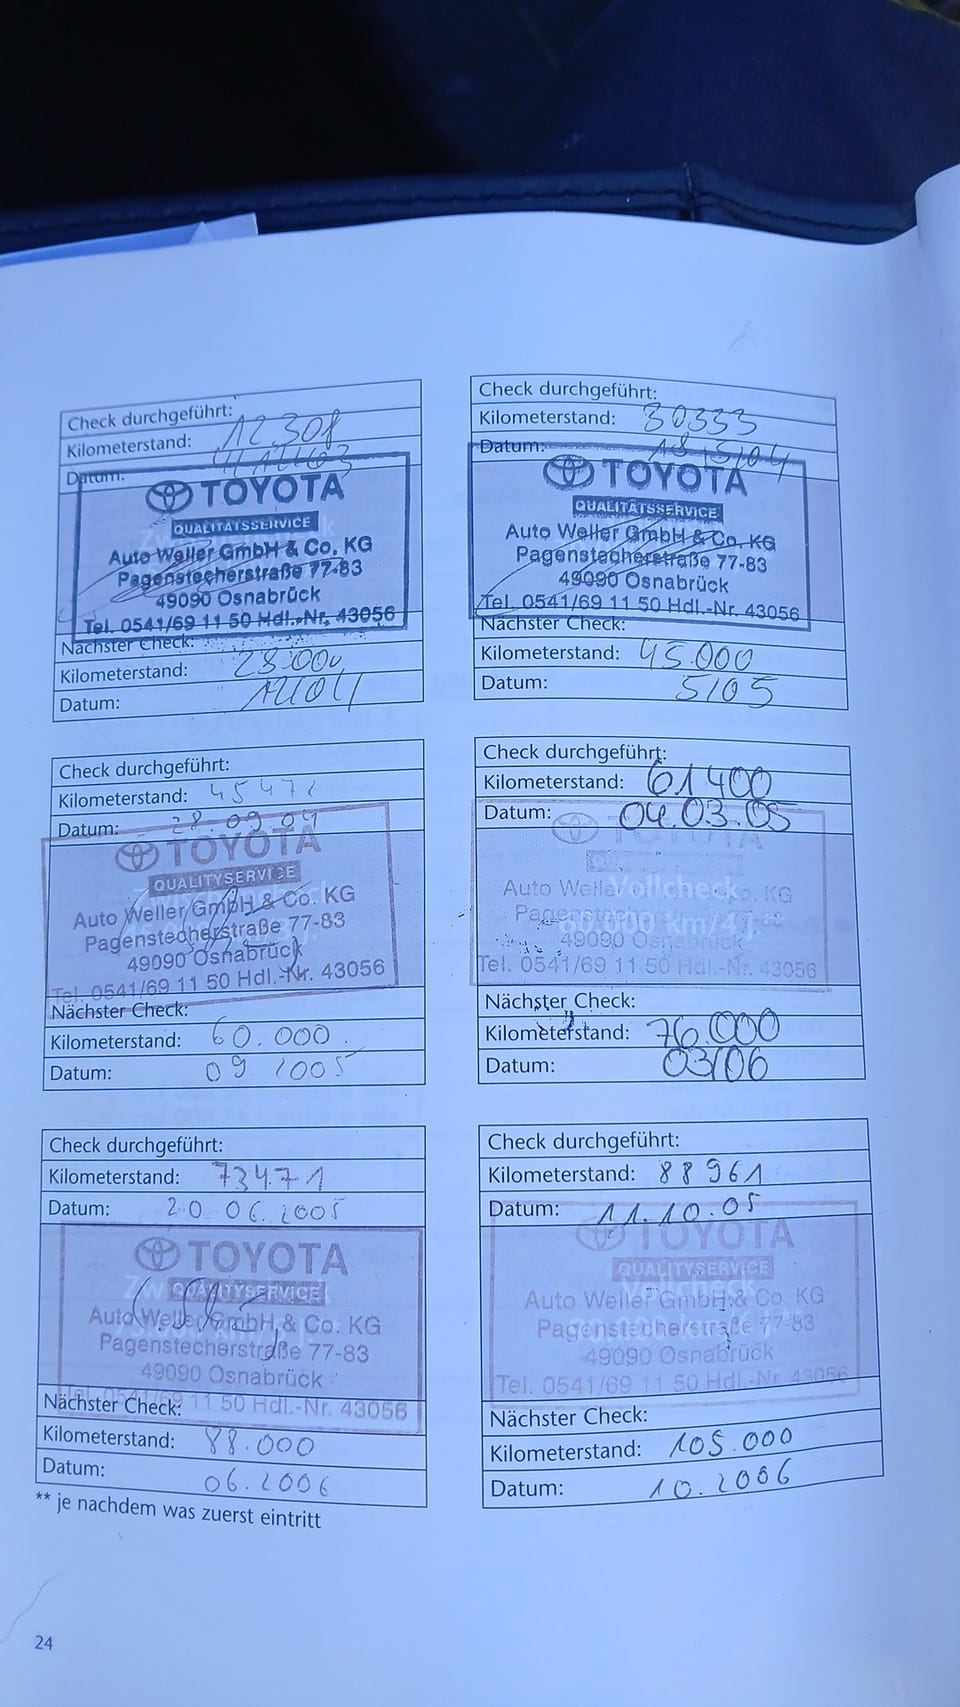 Check durchgeführt:
Kilometerstand: 12308
Datum:
TOYOTA
QUALITÄTSSERVICE
Auto Weller GmbH & Co. KG
Pagenstecherstraße 77-83
49090 Osnabrück
Tel. 0541/69 11 50 Hdl.-Nr. 43056
Nächster Check:
Kilometerstand: 28.000
Datum:
Check durchgeführt:
Kilometerstand: 30333
Datum: 18/5/04
TOYOTA
QUALITÄTSSERVICE
Auto Weller GmbH & Co. KG
Pagenstecherstraße 77-83
49090 Osnabrück
Tel. 0541/69 11 50 Hdl.-Nr. 43056
Nächster Check:
Kilometerstand: 45.000
Datum: 5/05
Check durchgeführt:
Kilometerstand:
Datum: 28.09.04
TOYOTA
QUALITYSERVICE
Auto Weller GmbH & Co. KG
Pagenstecherstraße 77-83
49090 Osnabrück
Tel. 0541/69 11 50 Hdl.-Nr. 43056
Nächster Check:
Kilometerstand: 60.000
Datum: 09.2005
Check durchgeführt:
Kilometerstand: 61400
Datum: 04.03.05
TOYOTA
Auto Weller Co. KG
Vollcheck
60.000 km/4 J.
49090 Osnabrück
Tel. 0541/69 11 50 Hdl.-Nr. 43056
Nächster Check:
Kilometerstand: 76.000
Datum: 03/06
Check durchgeführt:
Kilometerstand: 73471
Datum: 20.06.2005
TOYOTA
QUALITYSERVICE
Auto Weller GmbH & Co. KG
Pagenstecherstraße 77-83
49090 Osnabrück
Tel. 0541/69 11 50 Hdl.-Nr. 43056
Nächster Check:
Kilometerstand: 88.000
Datum: 06.2006
Check durchgeführt:
Kilometerstand: 88961
Datum: 11.10.05
TOYOTA
QUALITYSERVICE
Auto Weller GmbH & Co. KG
Pagenstecherstraße 77-83
49090 Osnabrück
Tel. 0541/69 11 50 Hdl.-Nr. 43056
Nächster Check:
Kilometerstand: 105.000
Datum: 10.2006
** je nachdem was zuerst eintritt
24